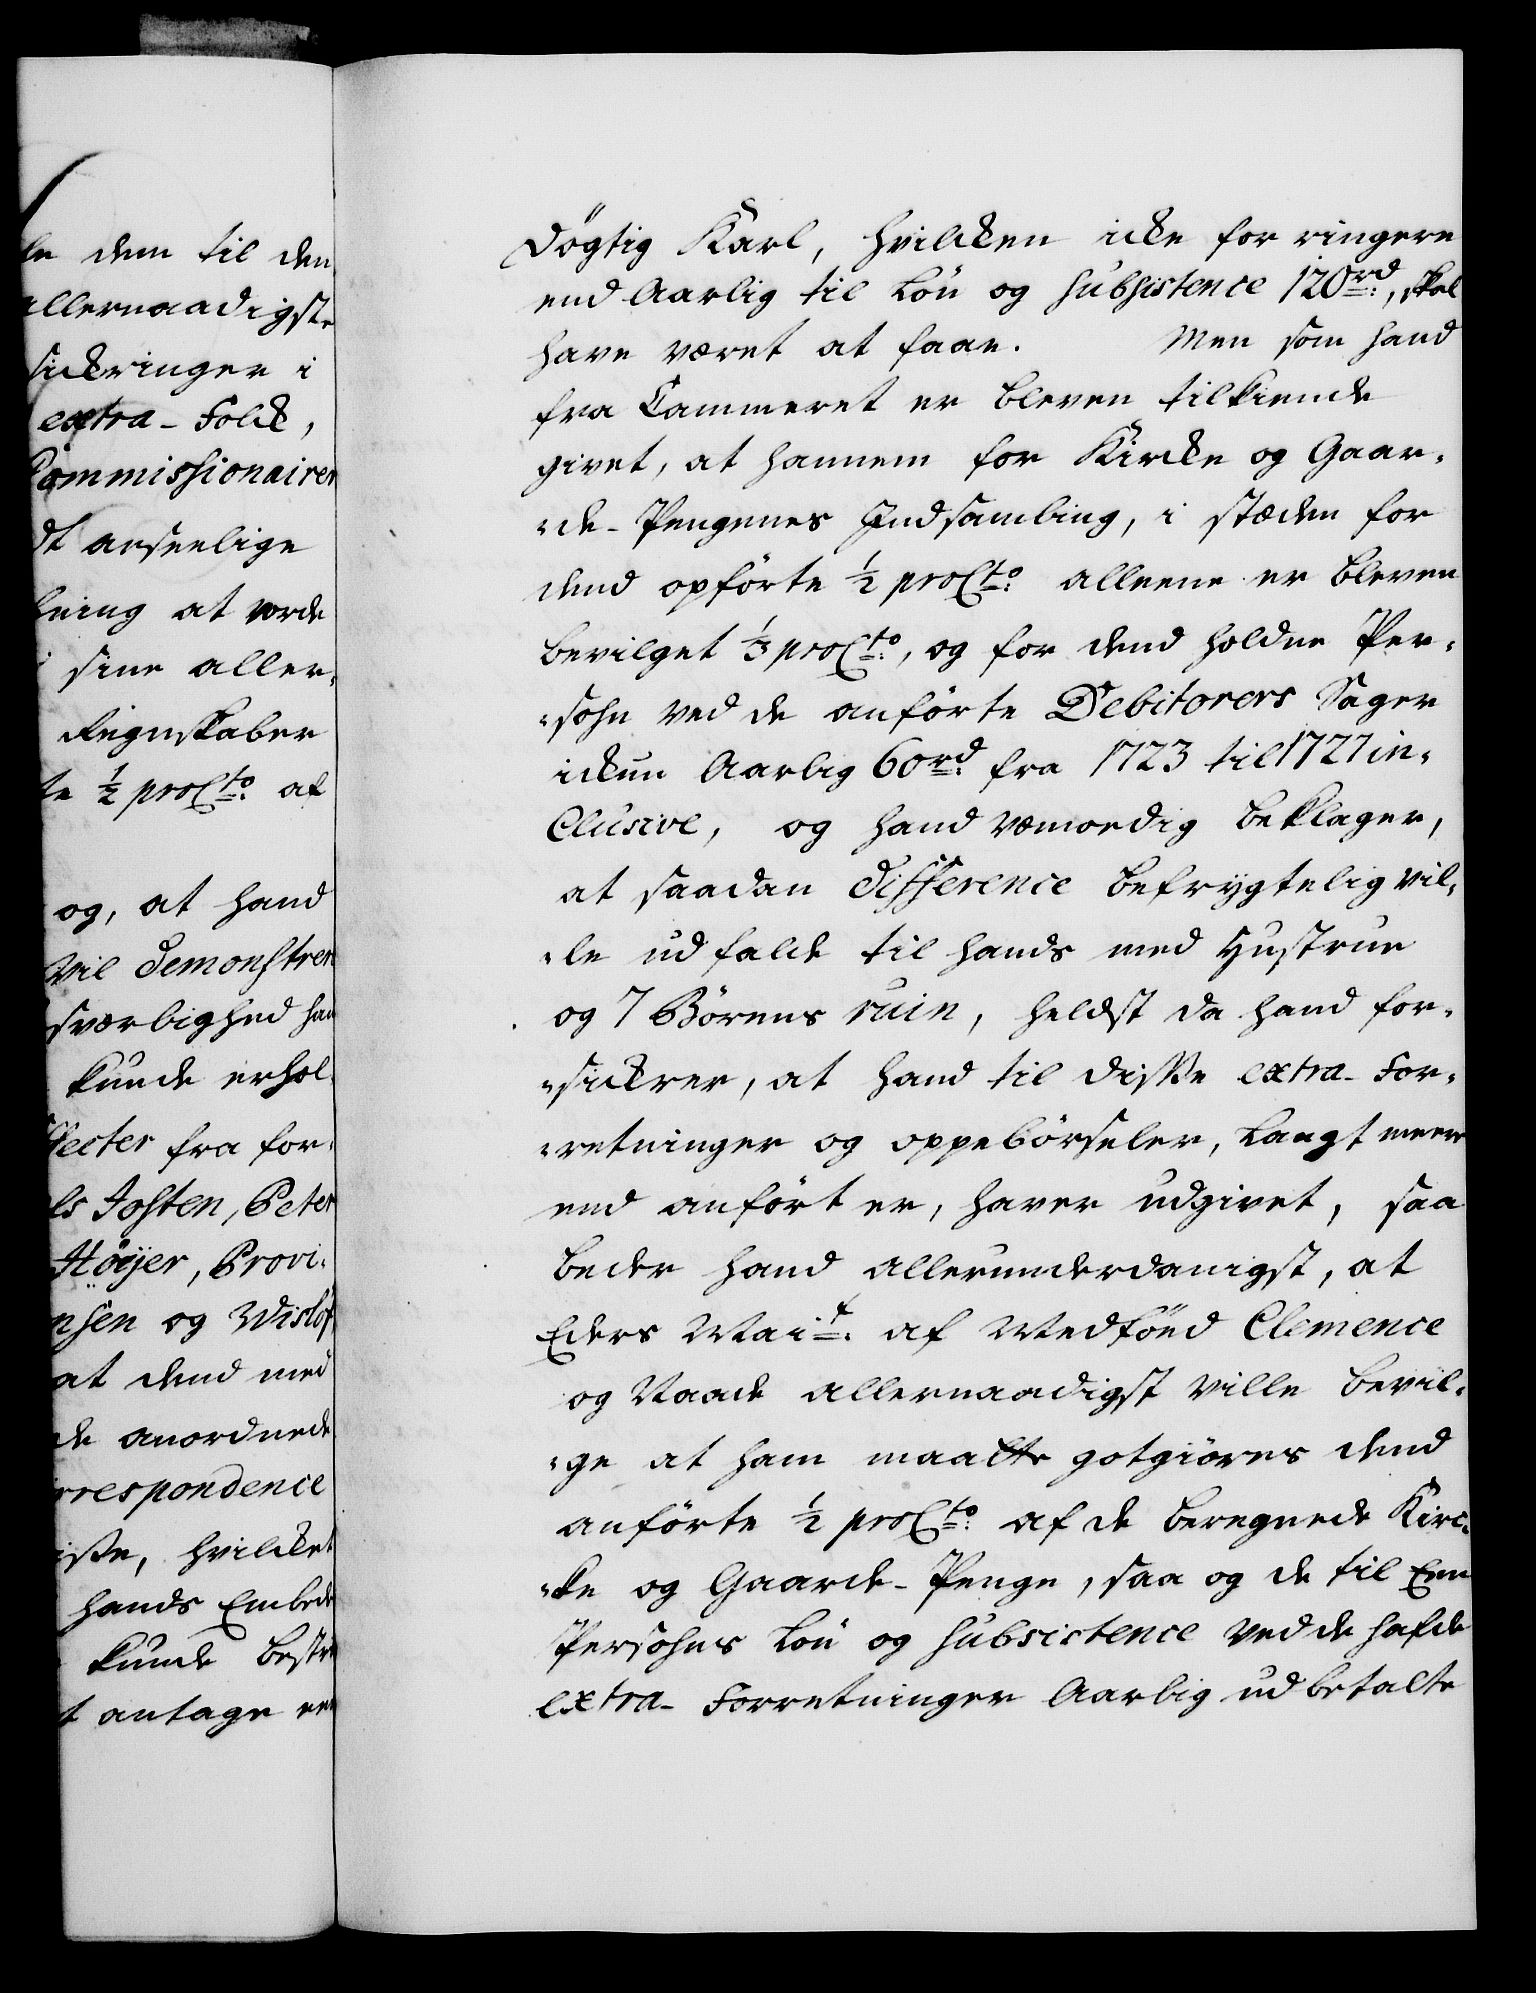 dem til den
allernaadigste
sickringer i
extra-Folck,
Commissionairer
anseelige
at vorde
sine aller-
Regnskaber
½ proCto: af
og, at hand
vil demonstrere
sværlighed
kunde erhol-
fra for-
Josten, Peter
Höyer, Provi-
og Wislof
at dend med
anordnede
hvilcket
hands Embede
kunde
antage
Dögtig Karl, hvilcken icke for ringere
end Aarlig til Lön og Subsistence 120rd:, skal
have været at faae. Men som hand
fra Cammeret er bleven tilkiende
givet, at hannem for Kircke og Gaar-
-de-Pengenes Indsamling, i stæden for
dend opförte ½ proCto: alleene er bleven
bevilget ⅓ proCto:, og for dend holdne Per-
-sohn ved de anförte Debitorers Sager
ickun Aarlig 60rd: fra 1723 til 1727 in-
Clusive, og hand vemoedig beklager,
at saadan difference befrygtelig vil-
-le udfalde til hands med Hustrue
og 7 Börens ruin, heldst da hand for-
-sickrer, at hand til disse extra-For-
-retninger og oppebörseler, langt meere
end anfört er, haver udgivet, saa
beder hand allerunderdanigst, at
Eders Mait: af Medfönd Clemence
og Naade allernaadigst ville bevil-
-ge at ham maatte gotgiöres dend
anförte ½ proCto: af de beregnede Kirc-
-ke og Gaarde-Penge, saa og de til Een
Persohns Lön og Subsistence ved de hafde
extra-Forretninger Aarlig udbetalte